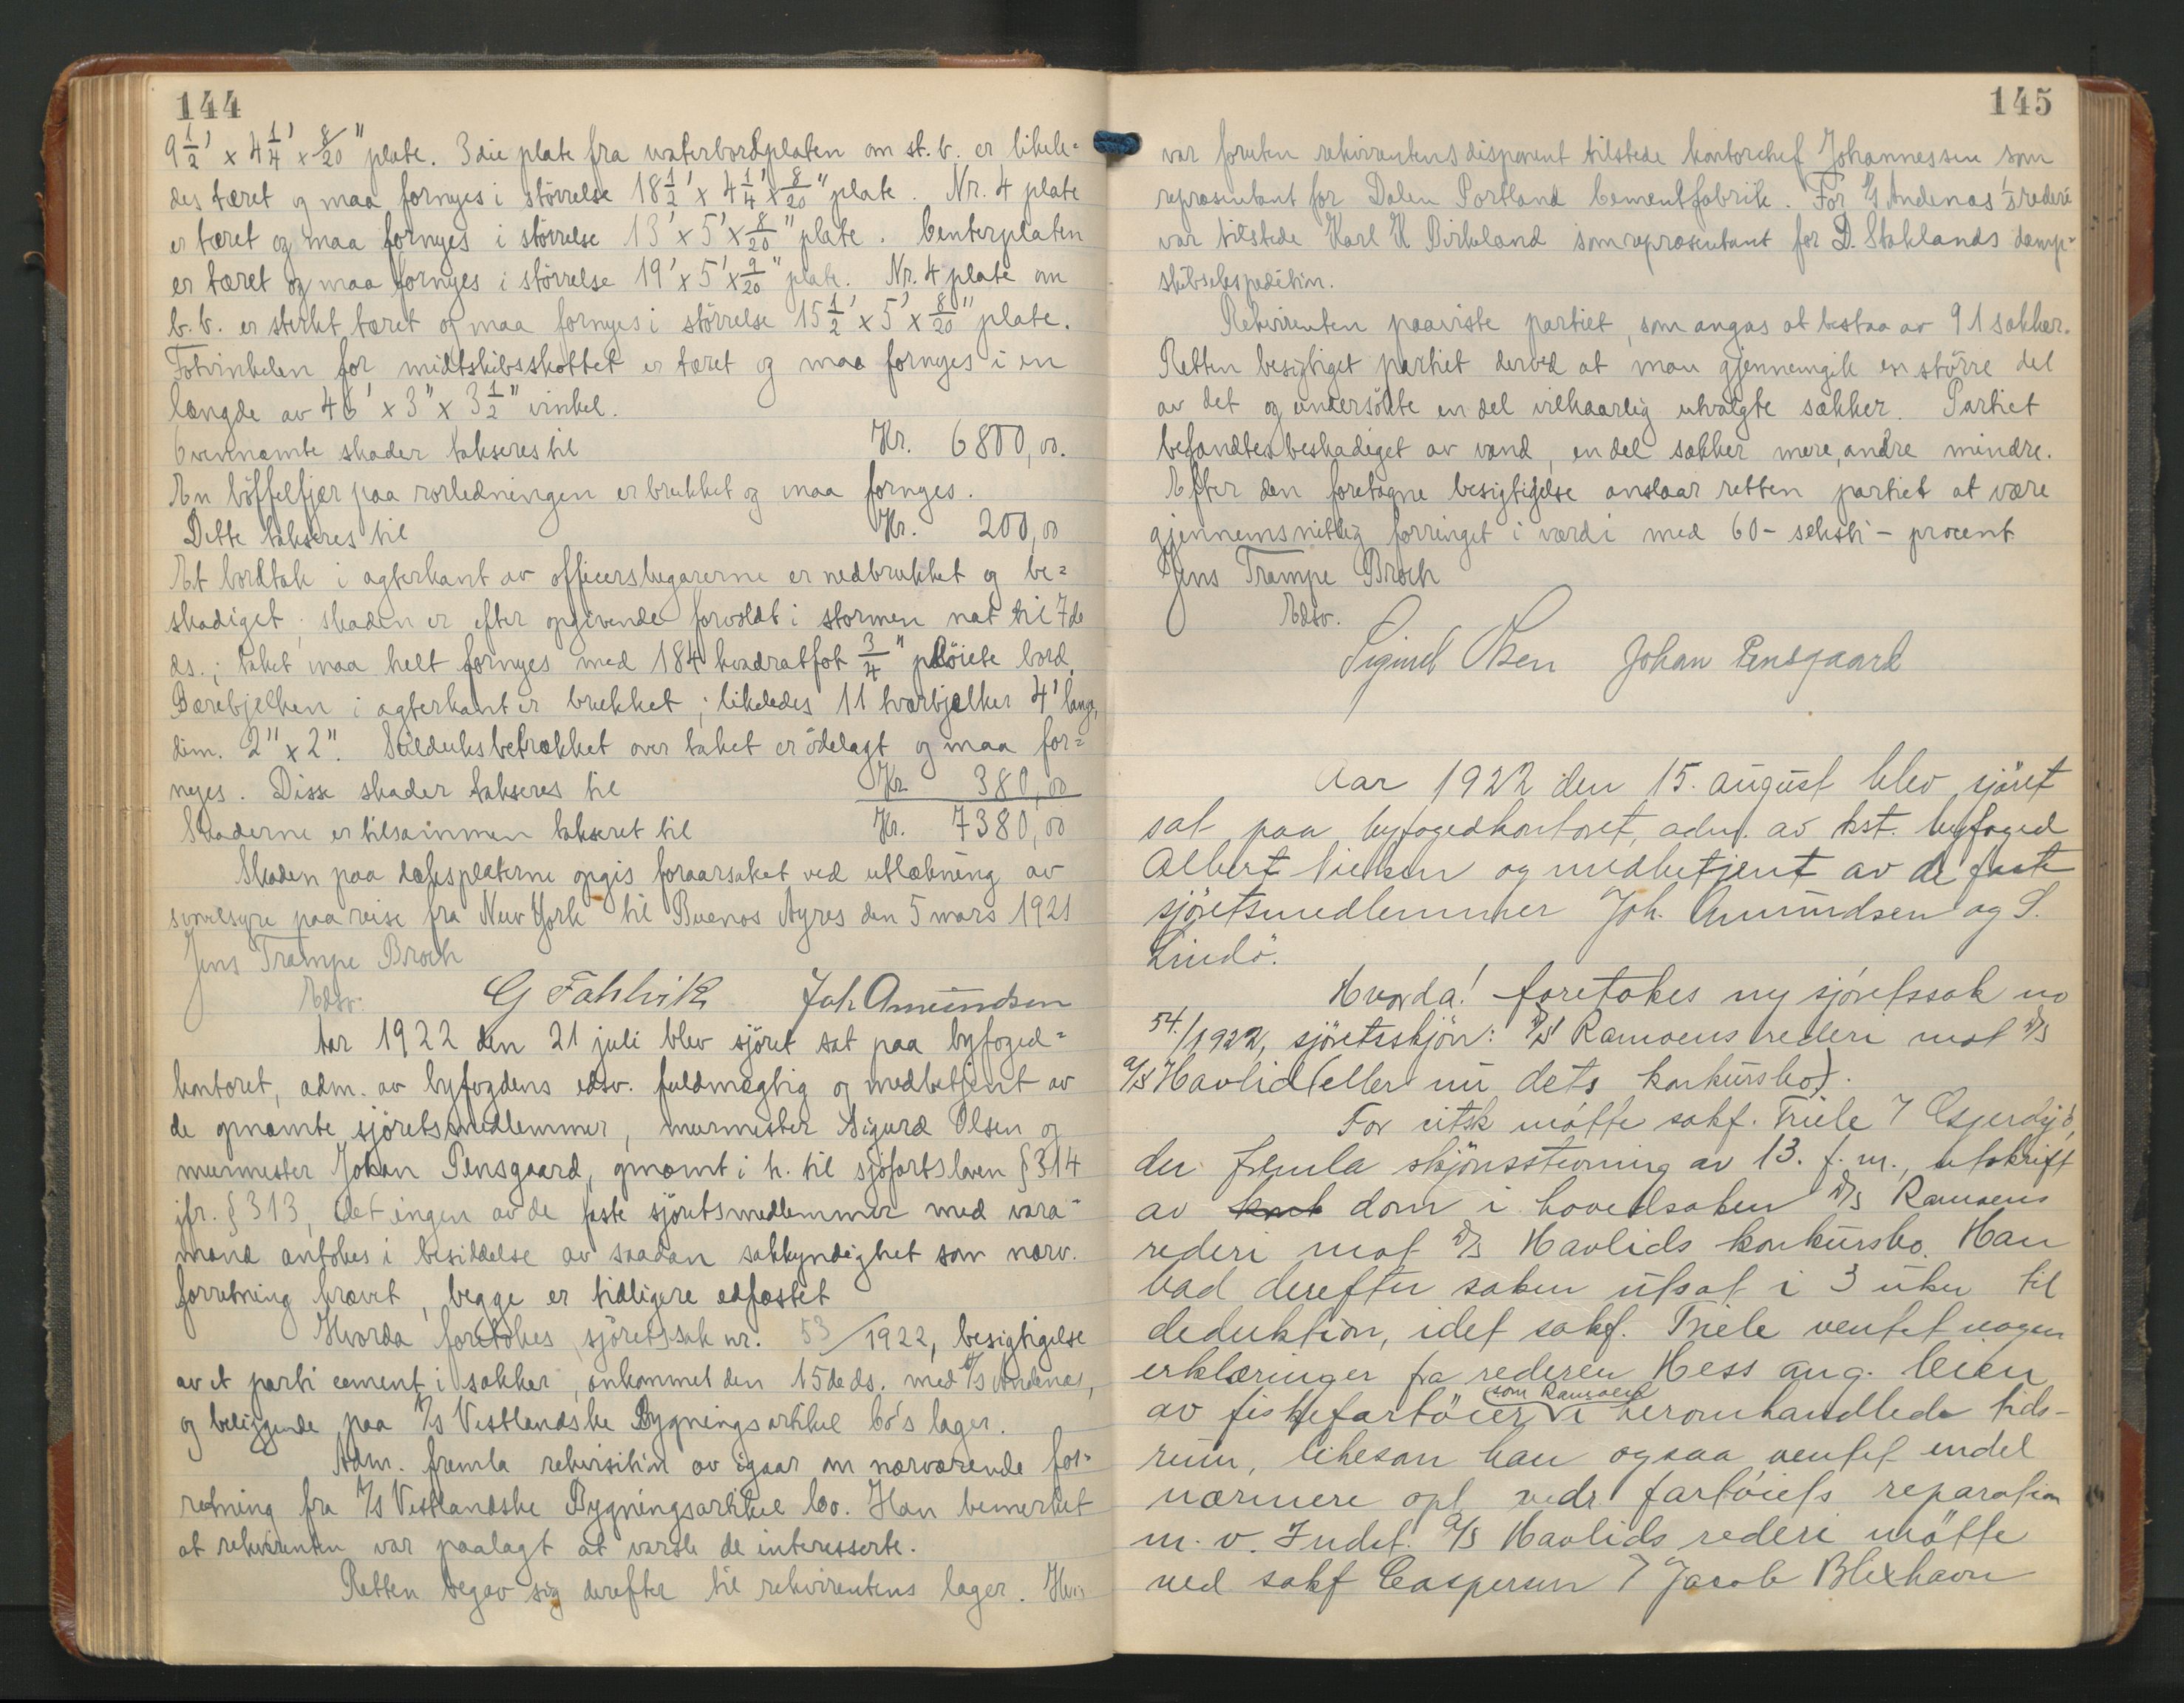 144
9 1/2' x 4 1/4' x 8/20" plate. 3die plate fra waterbordplaten om st.b. er likele=
des tæret og maa fornyes i störrelse 18 1/2' x 4 1/4' x 8/20" plate. Nr. 4 plate
er tæret og maa fornyes i störrelse 13' x 5' x 8/20" plate. Centerplaten
er tæret og maa fornyes i störrelse 19' x 5' x 9/20" plate. Nr. 4 plate om
b.b. er sterkt tæret og maa fornyes i störrelse 15 1/2' x 5' x 8/20" plate.
Fotvinkelen for midtskibsskottet er tæret og maa fornyes i en
længde av 46' x 3" x 3 1/2" vinkel.
Ovennævnte skader takseres til Kr. 6800,00.
En böffelfjær paa rorledningen er brukket og maa fornyes.
Dette takseres til Kr. 200,00
Et bordtak i agterkant av officersbugarerne er nedbrukket og be=
skadiget; skaden er efter opgivende forvoldt i stormen nat til 7de
ds.; taket maa helt fornyes med 184 kvadratfot 3/4" plöiete bord.
Bærebjelken i agterkant er brukket; likeledes 11 tværbjelker 4' lange,
dim. 2" x 2". Seilduksbetrækket over taket er ödelagt og maa for=
nyes. Disse skader takseres til Kr. 380,00
Skaderne er tilsammen takseret til Kr. 7380,00
Skaden paa dæksplaterne opgis foraarsaket ved utlækning av
svovelsyre paa reise fra New York til Buenos Ayres den 5 mars 1921
Jens Trampe Broch
Edsv. G Fahlvik Joh Amundsen
Aar 1922 den 21 juli blev sjöret sat paa byfoged=
kontoret, adm. av byfogdens edsv. fuldmægtig og medbetjent av
de opnævnte sjöretsmedlemmer, murmester Sigurd Olsen og
murmester Johan Pensgaard, opnævnt i h. til sjöfartsloven § 314
jfr. § 313, idet ingen av de faste sjöretsmedlemmer med vara=
mænd antokes i besiddelse av saadan sakkyndighet som nærv.
forretning krævet, begge er tidligere edfæstet
Hvorda foretokes sjöretssak nr. 53/1922, besigtigelse
av et parti cement i sækker, ankommet den 15de ds. med D/S Andenæs,
og beliggende paa A/S Vestlandske Bygningsartikel Co's lager.
Adm. fremla rekvisition av igaar om nærværende for=
retning fra A/S Vestlandske Bygningsartikel Co. Han bemerket
at rekvirenten var paalagt at varsle de interesserte.
Retten begav sig derefter til rekvirentens lager. Hvor
145
var foruten rekvirentens disponent tilstede kontorchef Johannessen som
repræsentant for Dalen Portland Cementfabrik. For D/S Andenæs's rederi
var tilstede Karl K Birkeland som repræsentant for D. Staklands damp=
skibsekspedition.
Rekvirenten paaviste partiet, som angaes at bestaa av 91 sækker.
Retten besigtiget partiet derved at man gjennemgik en större del
av det og undersökte en del vilkaarlig utvalgte sækker. Partiet
befandtes beskadiget av vand, en del sækker mere, andre mindre.
Efter den foretagne besigtigelse anslaar retten partiet at være
gjennemsnitlig forringet i værdi med 60 - seksti - procent
Jens Trampe Broch
Edsv.
Sigurd Olsen Johan Pensgaard
Aar 1922 den 15. august blev sjöret
sat paa byfogedkontoret, adm. av kst. byfoged
Albert Nielsen og medbetjent av de faste
sjöretsmedlemmer Joh. Amundsen og S.
Lindö.
Hvorda! foretokes ny sjöretssak no
54./1922, sjöretsskjön: D/S Ramoens rederi mot D/S
A/S Havlid (eller nu dets konkursbo).
For citsk mötte sakf. Friele
der fremla skjönsstevning av 13. f.m., utskrift
av dom i hovedsaken D/S Ramoens
rederi mot D/S Havlids konkursbo. Han
bad derefter saken utsat i 3 uker til
deduktion, idet sakf. Friele ventet nogen
erklæringer fra rederen Hess ang. leien
av fiskefartöier som Ramoen i heromhandlede tids-
rum, likesom han ogsaa ventet endel
nærmere opl. vedr fartöiets reparation
m.v. Indst. A/S Havlids rederi mötte
ved sakf Caspersen Jacob Blixhavn